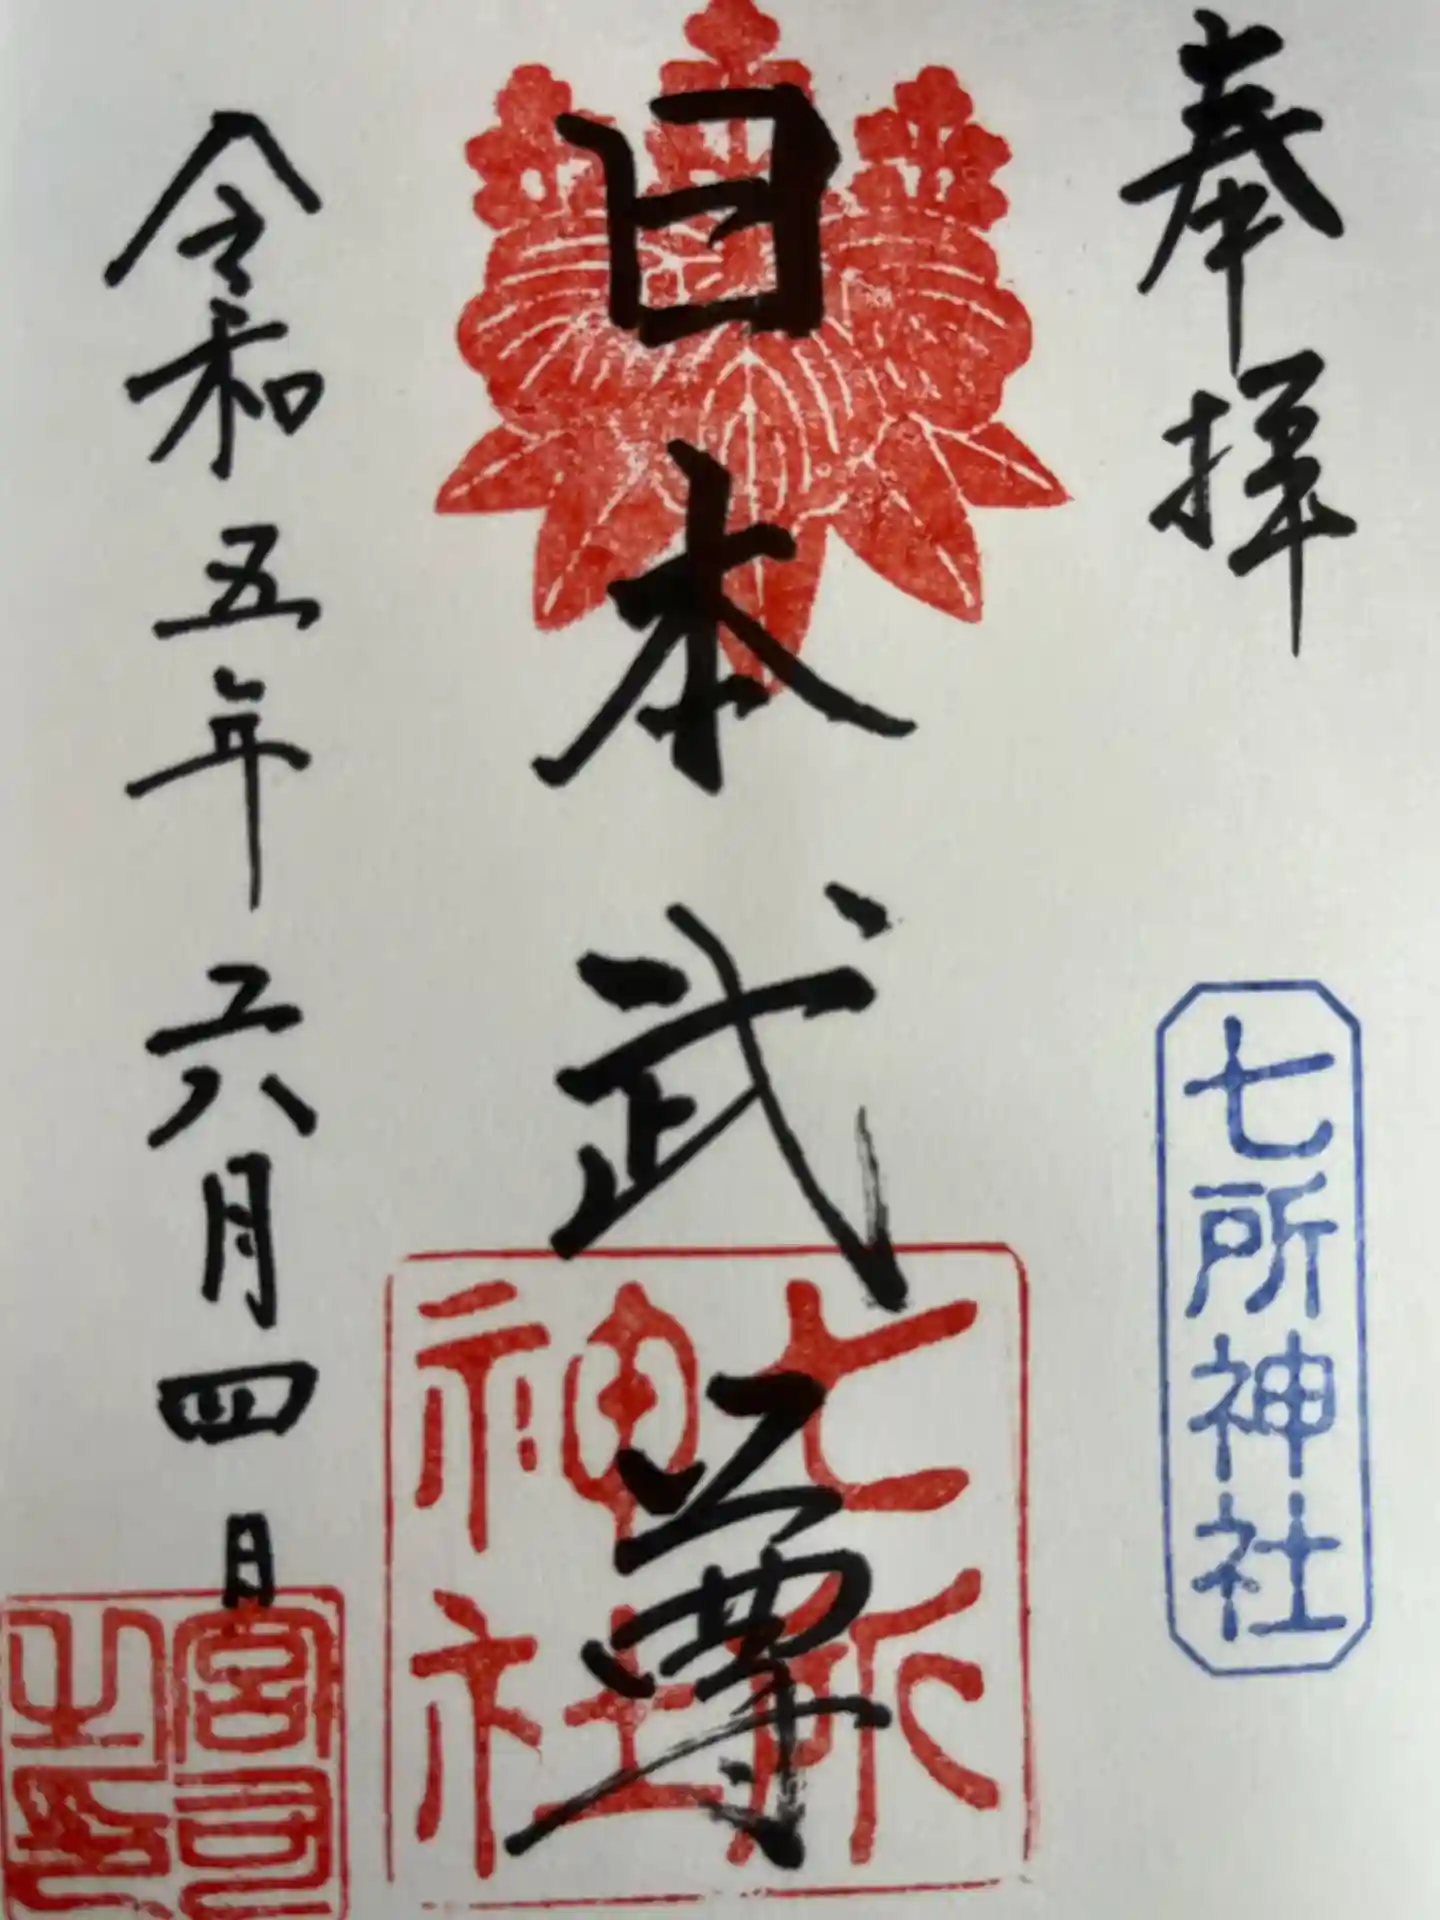 奉拝
七所神社
日本武尊
七所
神社
令和五年六月四日
宮司
之印